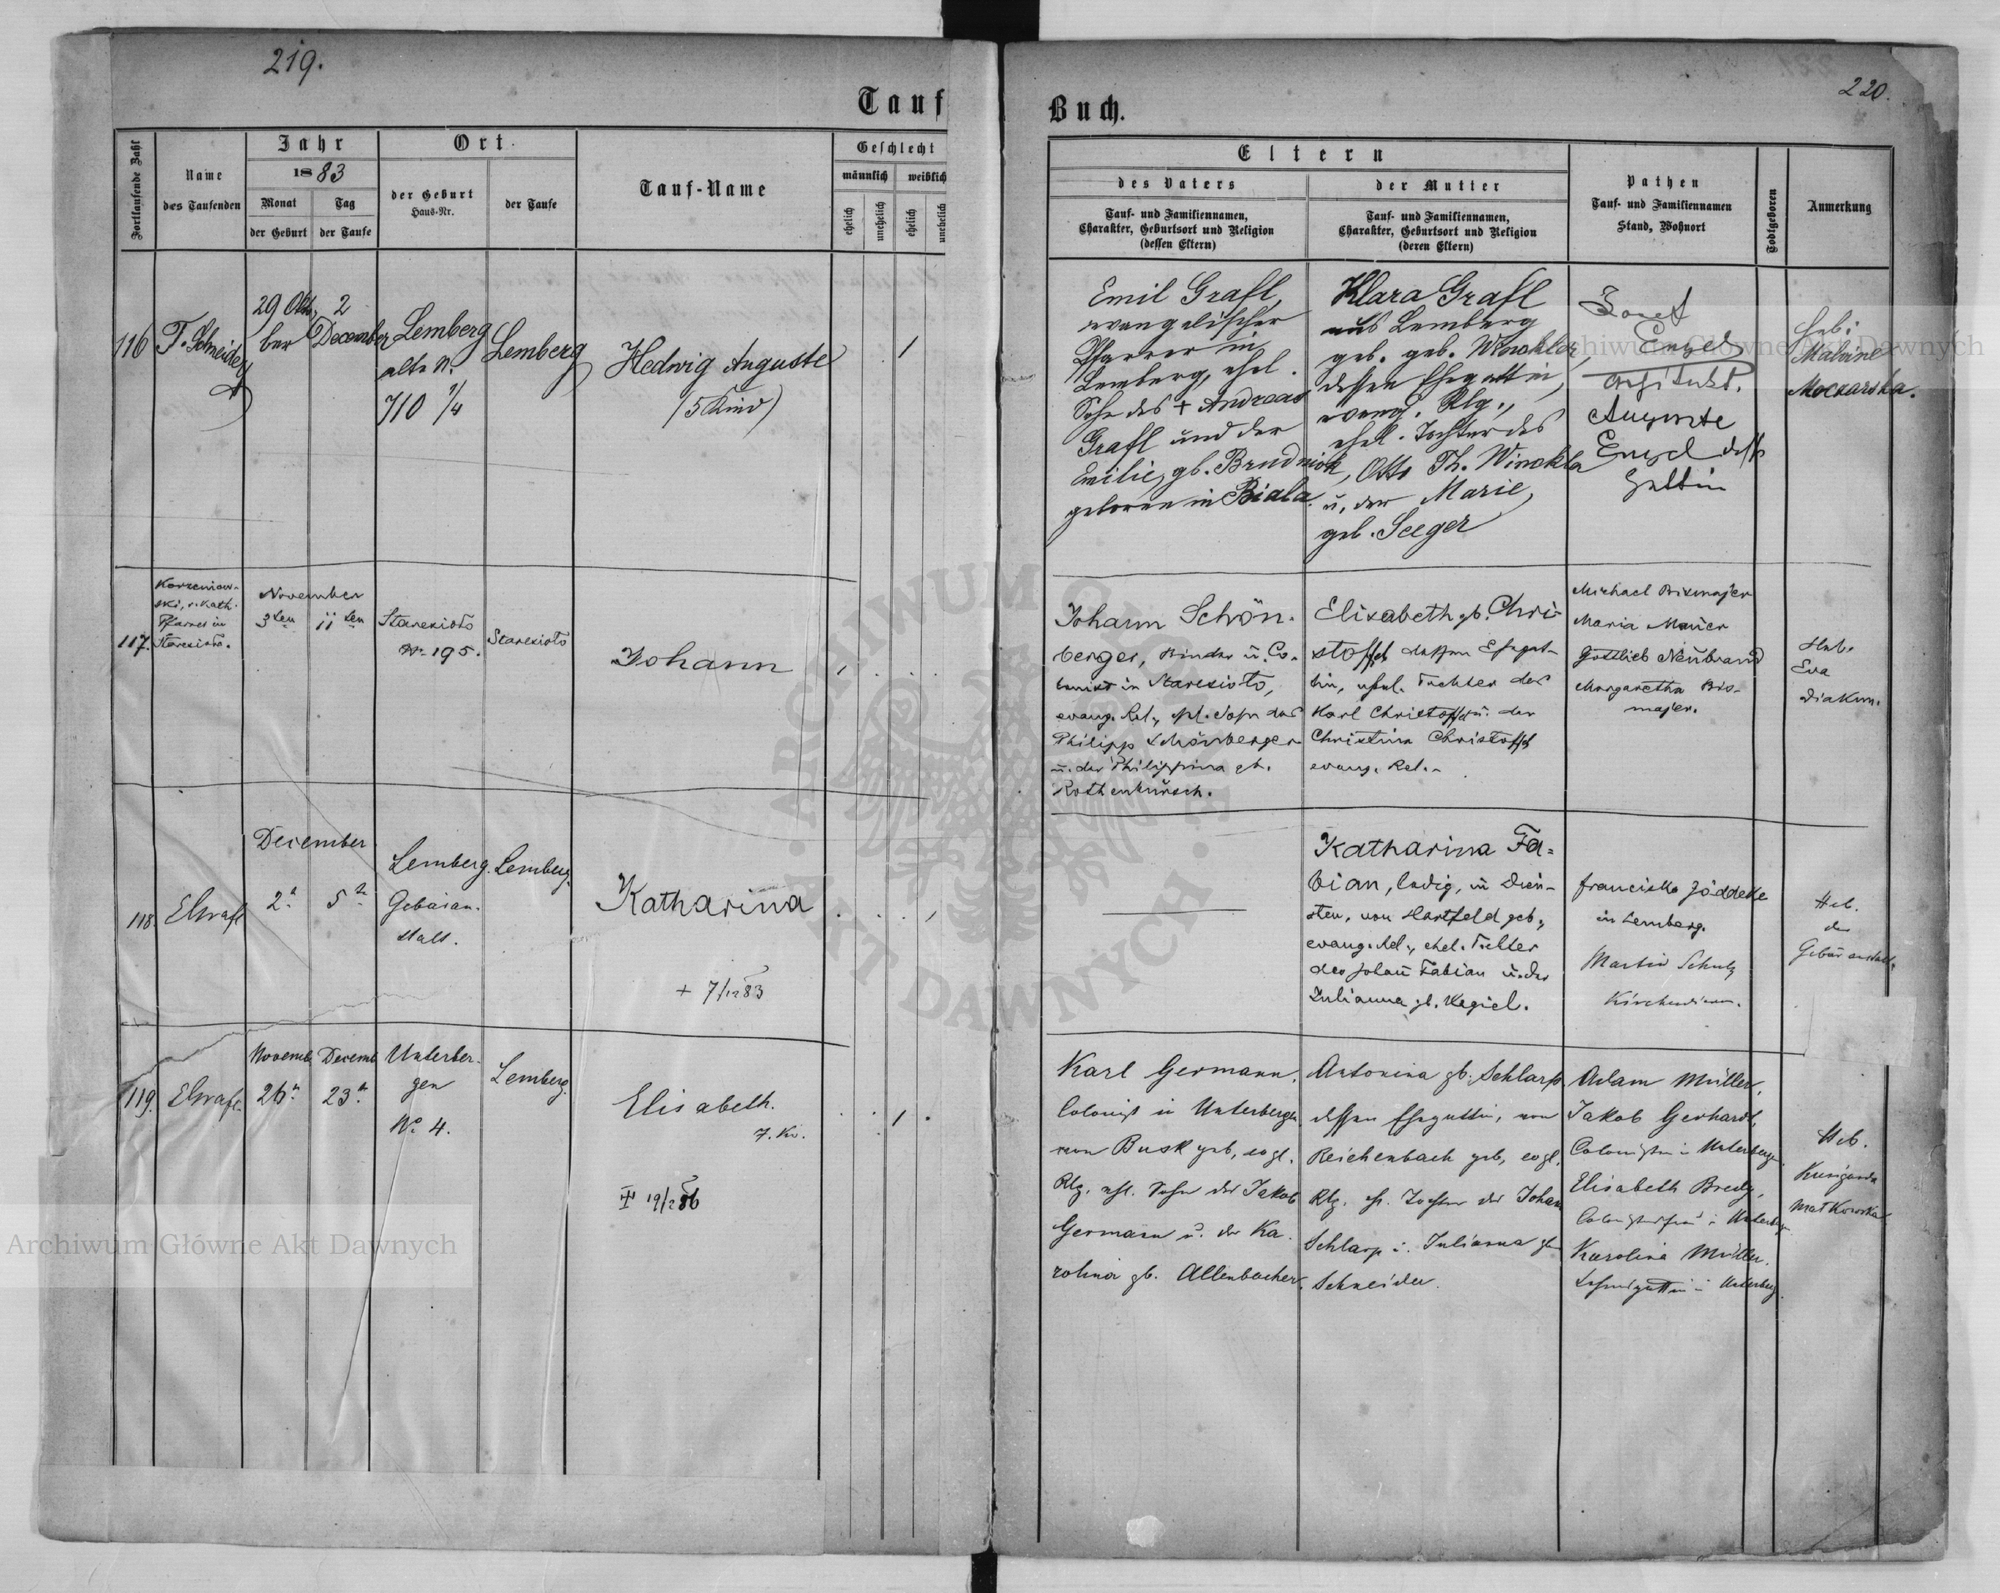 219.
220.
Tauf
Buch.
Fortlaufende Zahl
Name
des Taufenden
Jahr
1883
Monat
der Geburt
Tag
der Taufe
Ort
der Geburt
Haus-Nr.
der Taufe
Tauf-Name
Geschlecht
männlich
weiblich
ehelich
unehelich
ehelich
unehelich
Eltern
des Vaters
Tauf- und Familiennamen,
Charakter, Geburtsort und Religion
(dessen Eltern)
der Mutter
Tauf- und Familiennamen,
Charakter, Geburtsort und Religion
(deren Eltern)
Pathen
Tauf- und Familiennamen
Stand, Wohnort
Todtgeboren
Anmerkung
116
29 Okto
ber
2
December
Lemberg
alte N.
710 2/4
Lemberg
Hedwig Auguste
(5 Kind)
Emil Grafl,
evangelischer
Pfarrer in
Lemberg, ehel.
Sohn des + Andreas
Grafl und der
Emilie, gb. Brudniok,
geboren in Biala.
Klara Grafl
aus Lemberg
geb. geb. Winckler,
dessen Ehegattin,
evang. Rlg.,
ehel. Tochter des
Otto Th. Winckler
u. der Marie,
geb. Seeger
Josef
Engel
Architekt.
Auguste
Engel dess.
Gattin
Heb:
Malvine
Moczarska.
117.
Korzeniow-
ski, r. kath.
Pfarrer in
Staresioło.
November
3ten
11ten
Staresioło
Nr. 195.
Staresioło
Johann
Johann Schön-
berger, Binder u. Co-
lonist in Staresioło,
evang. Rel., ehl. Sohn des
Philipp Schönberger
u. der Philippina gb.
Elisabeth gb. Chri-
stoffel dessen Ehegat-
tin, ehel. Tochter des
Karl Christoffel u. der
Christina Christoffel
evang. Rel.
Michael Bismajer
Maria Mauer
Gottlieb Neubrand
Margaretha Bis-
majer.
Heb.
Eva
Diakun.
118.
December
2.
5.
Lemberg.
Gebäran-
stalt.
Lemberg.
Katharina
+ 7/12 83
Katharina Fa-
bian, ledig, in Dien-
sten, von Hartfeld geb.,
evang. Rel., ehel. Tochter
des Johann Fabian u. der
Julianna gb. Kegiel.
Franciska
in Lemberg.
Martin Schulz
Kirchendiener.
Heb.
der
Gebäranstalt.
119.
Novemb.
26.
Decemb.
23.
Unterber-
gen
No 4.
Lemberg.
Elisabeth.
7. Ki.
19/2 86
Karl Germann,
Colonist in Unterbergen
von Busk geb, evgl.
Rlg. ehl. Sohn des Jakob
Germann u. der Ka-
rolina gb. Allenbacher.
Antonina gb. Schlarp
dessen Ehegattin, von
Reichenbach geb, evgl.
Rlg. eh. Tochter des Johan
Schlarp u. Julianna gb
Schneider.
Adam Müller,
Jakob Gerhardt,
Colonisten in Unterbergen
Elisabeth Bredy,
Karolina Müller.
Heb.
Kunigunda
Matkowska
Archiwum Główne Akt Dawnych
Archiwum Główne Akt Dawnych
ARCHIWUM GŁÓWNE AKT DAWNYCH